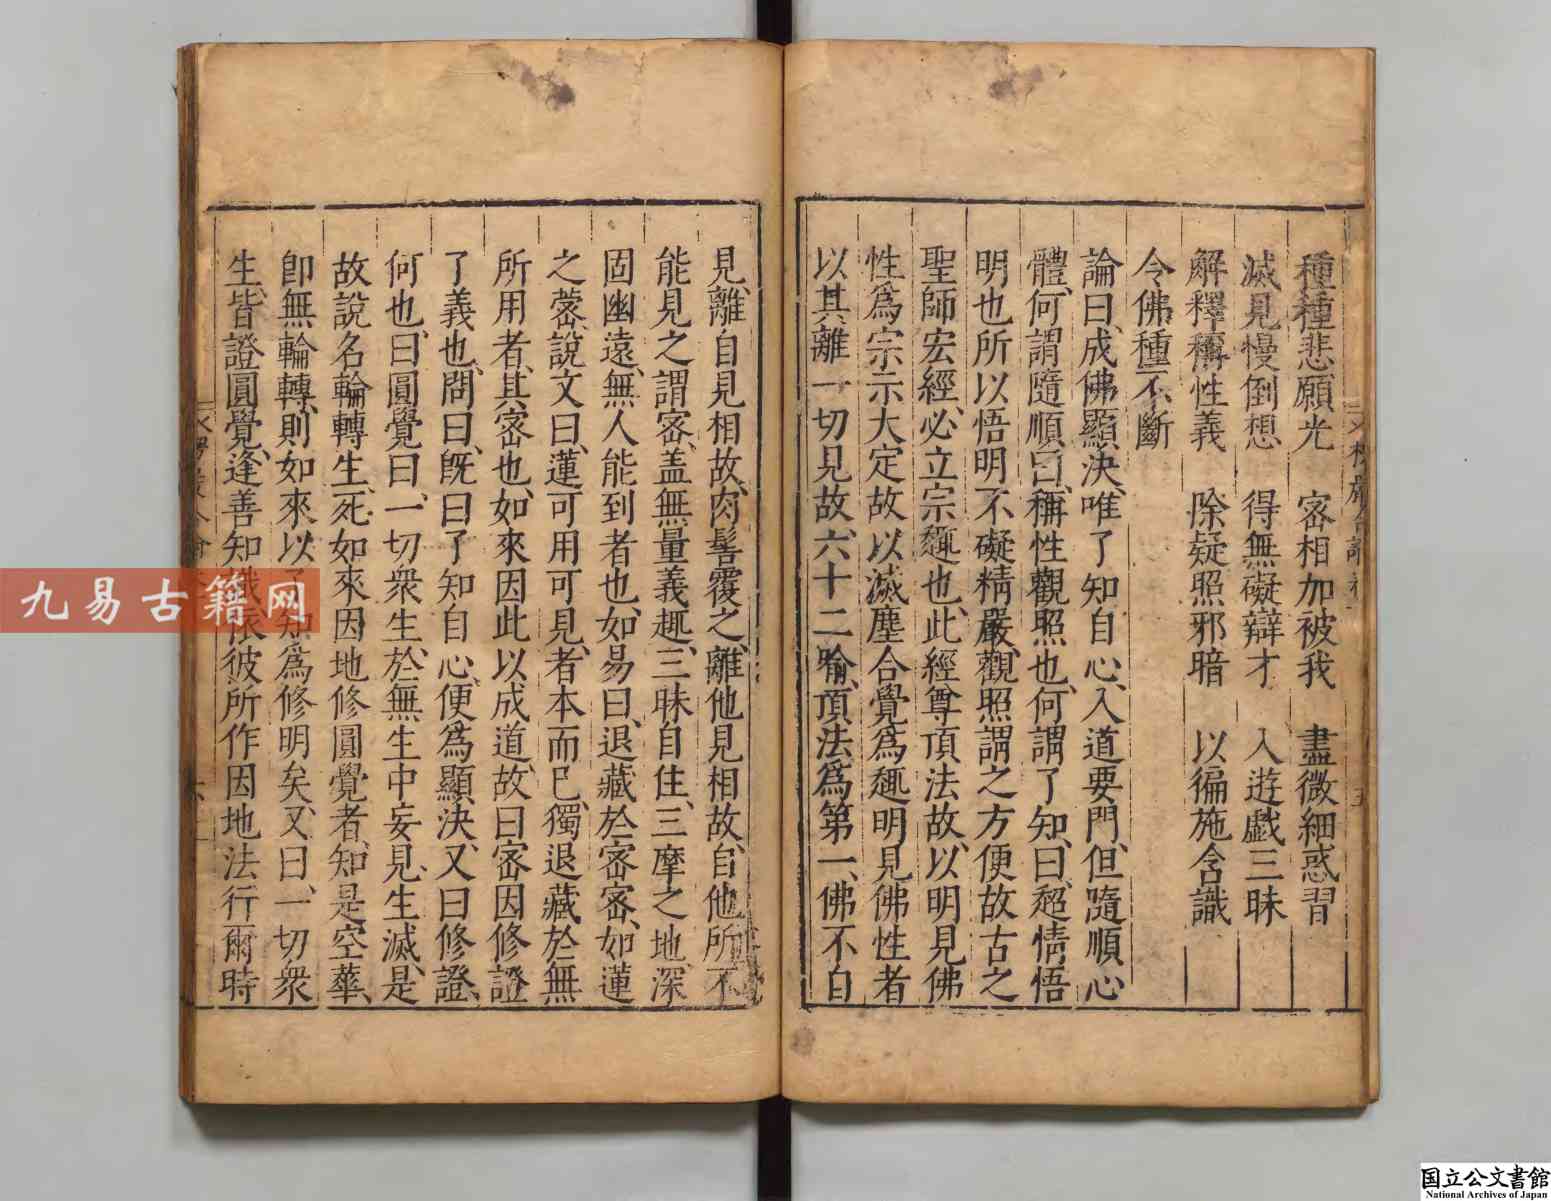 種種悲願光　密相加被我　盡微細惑習
滅見慢倒想　得無礙辯才　入遊戲三昧
解釋稱性義　除疑照邪暗　以徧施含識
令佛種不斷
論曰、成佛顯決、唯了知自心、入道要門、但隨順心
體、何謂隨順、曰、稱性觀照也、何謂了知、曰、超情悟
明也、所以悟明不礙精嚴、觀照謂之方便、故古之
聖師宏經、必立宗趣也、此經尊頂法故、以明見佛
性爲宗、示大定故、以滅塵合覺爲趣、明見佛性者
以其離一切見故、六十二喻、頂法爲第一、佛不自
見、離自見相故、肉髻覆之、離他見相故、自他所不
能見之謂密、盖無量義趣、三昧自住、三摩之地、深
固幽遠、無人能到者也、如易曰、退藏於密、密如蓮
之蔤、說文曰、蓮可用可見、者本而已、獨退藏於無
所用者、其密也、如來因此以成道、故曰密因修證
了義也、問曰、既曰了知自心、便爲顯決、又曰修證、
何也、曰、圓覺曰、一切衆生、於無生中、妄見生滅、是
故說名輪轉生死、如來因地修圓覺者、知是空華、
卽無輪轉、則如來以了知爲修明矣、又曰、一切衆
生、皆證圓覺、逢善知識、依彼所作因地法行、爾時
九易古籍网
国立公文書館
National Archives of Japan